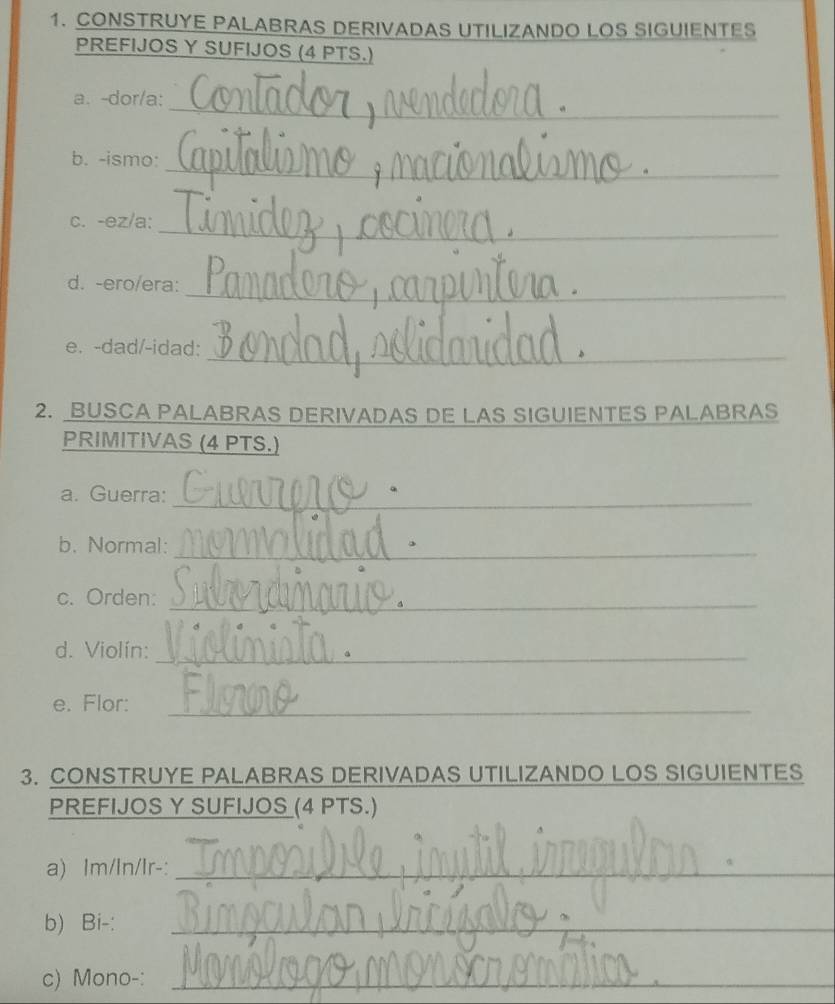 1. CONSTRUYE PALABRAS DERIVADAS UTILIZANDO LOS SIGUIENTES
PREFIJOS Y SUFIJOS (4 PTS.)
a. -dor/a: Contador, vendedora.
b. -ismo: Capitalismo, nacionalismo.
c. -ez/a: Timidez, cocinera.
d. -ero/era: Panadero, carpintera.
e. -dad/-idad: Bondad, solidaridad.
2. BUSCA PALABRAS DERIVADAS DE LAS SIGUIENTES PALABRAS
PRIMITIVAS (4 PTS.)
a. Guerra: Guerrero.
b. Normal: normalidad.
c. Orden: Subordinario.
d. Violín: Violinista.
e. Flor: Florero
3. CONSTRUYE PALABRAS DERIVADAS UTILIZANDO LOS SIGUIENTES
PREFIJOS Y SUFIJOS (4 PTS.)
a) Im/In/Ir-: Imposible, inutil, irregular.
b) Bi-: Binocular,
c) Mono-: Monólogo, monocromática.